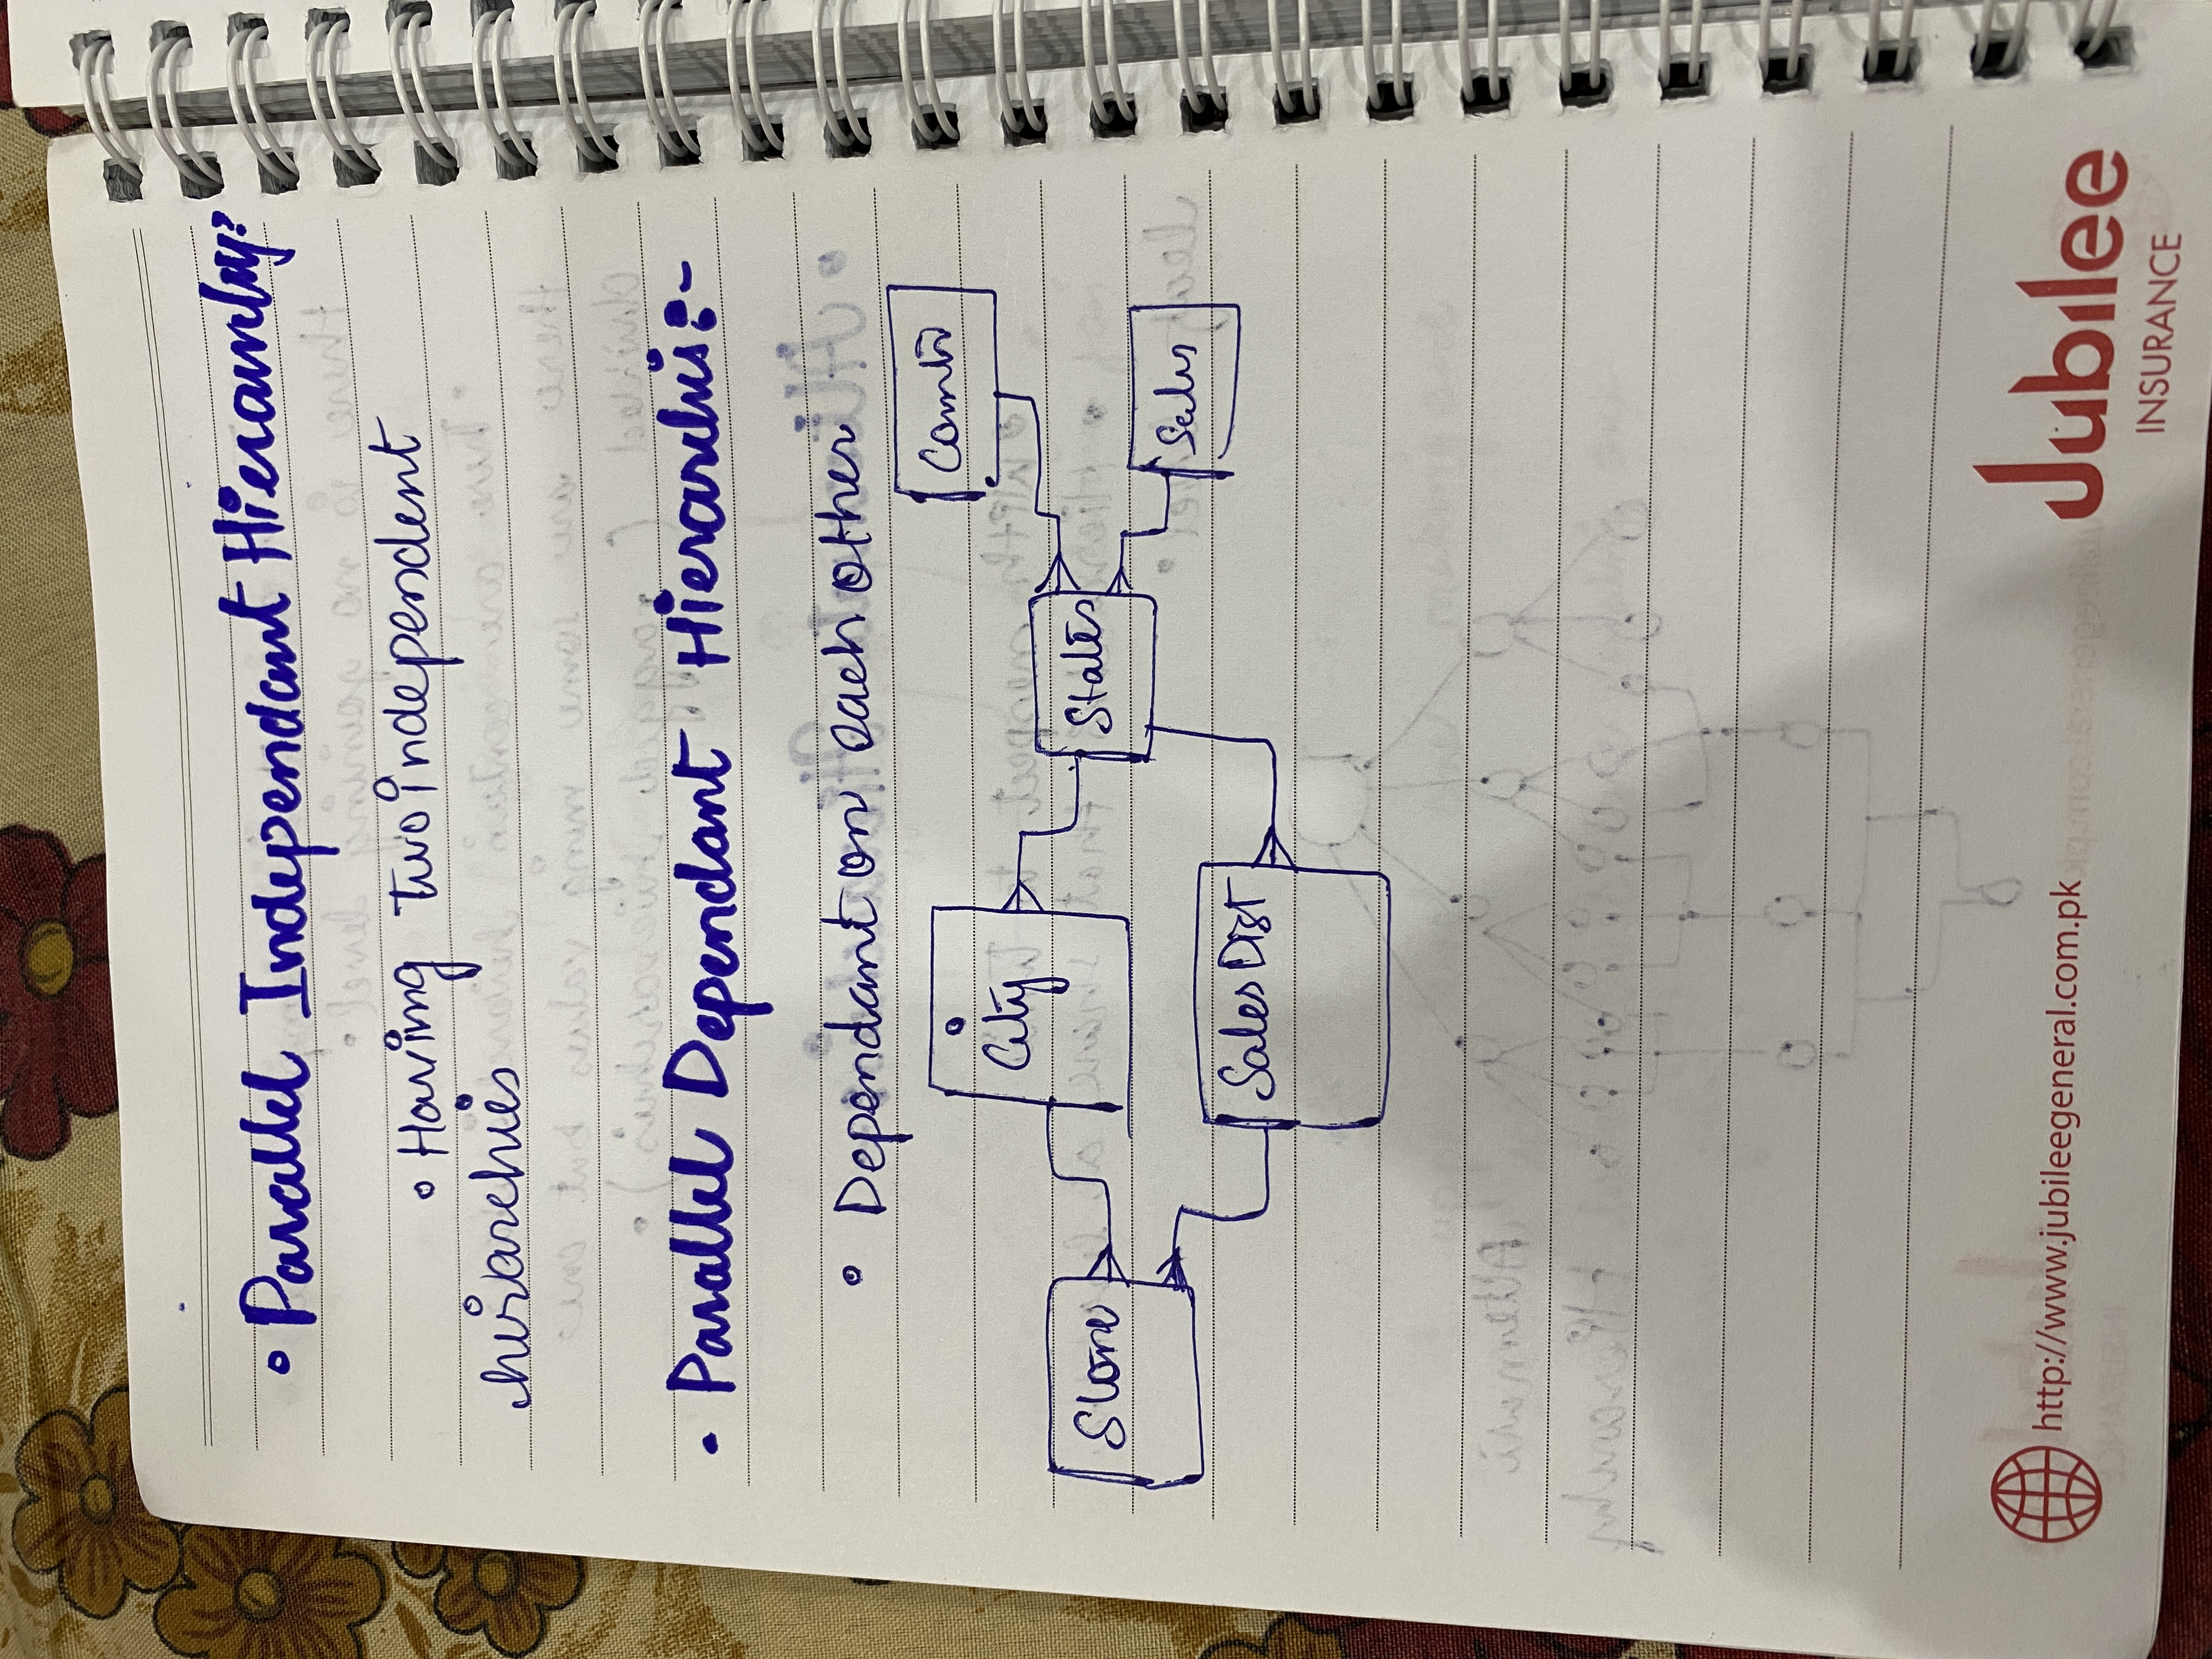 • Parallel Independant Hierarchy:
• Having two independent
hirarchies
• Parallel Dependant Hierarchis:-
• Dependant on each other
Country
City
States
Store
Sales
Sales Dist
http://www.jubileegeneral.com.pk
Jubilee
INSURANCE